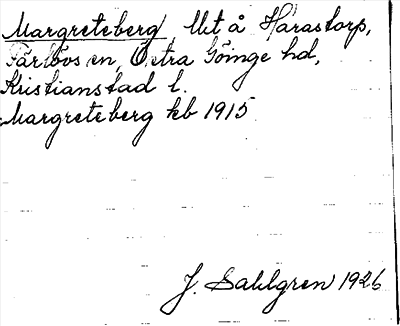 Margreteberg, Llt å Harastorp,
Färlövs sn, Östra Göinge hd,
Kristianstad l.
Margreteberg kb 1915
J. Sahlgren 1926